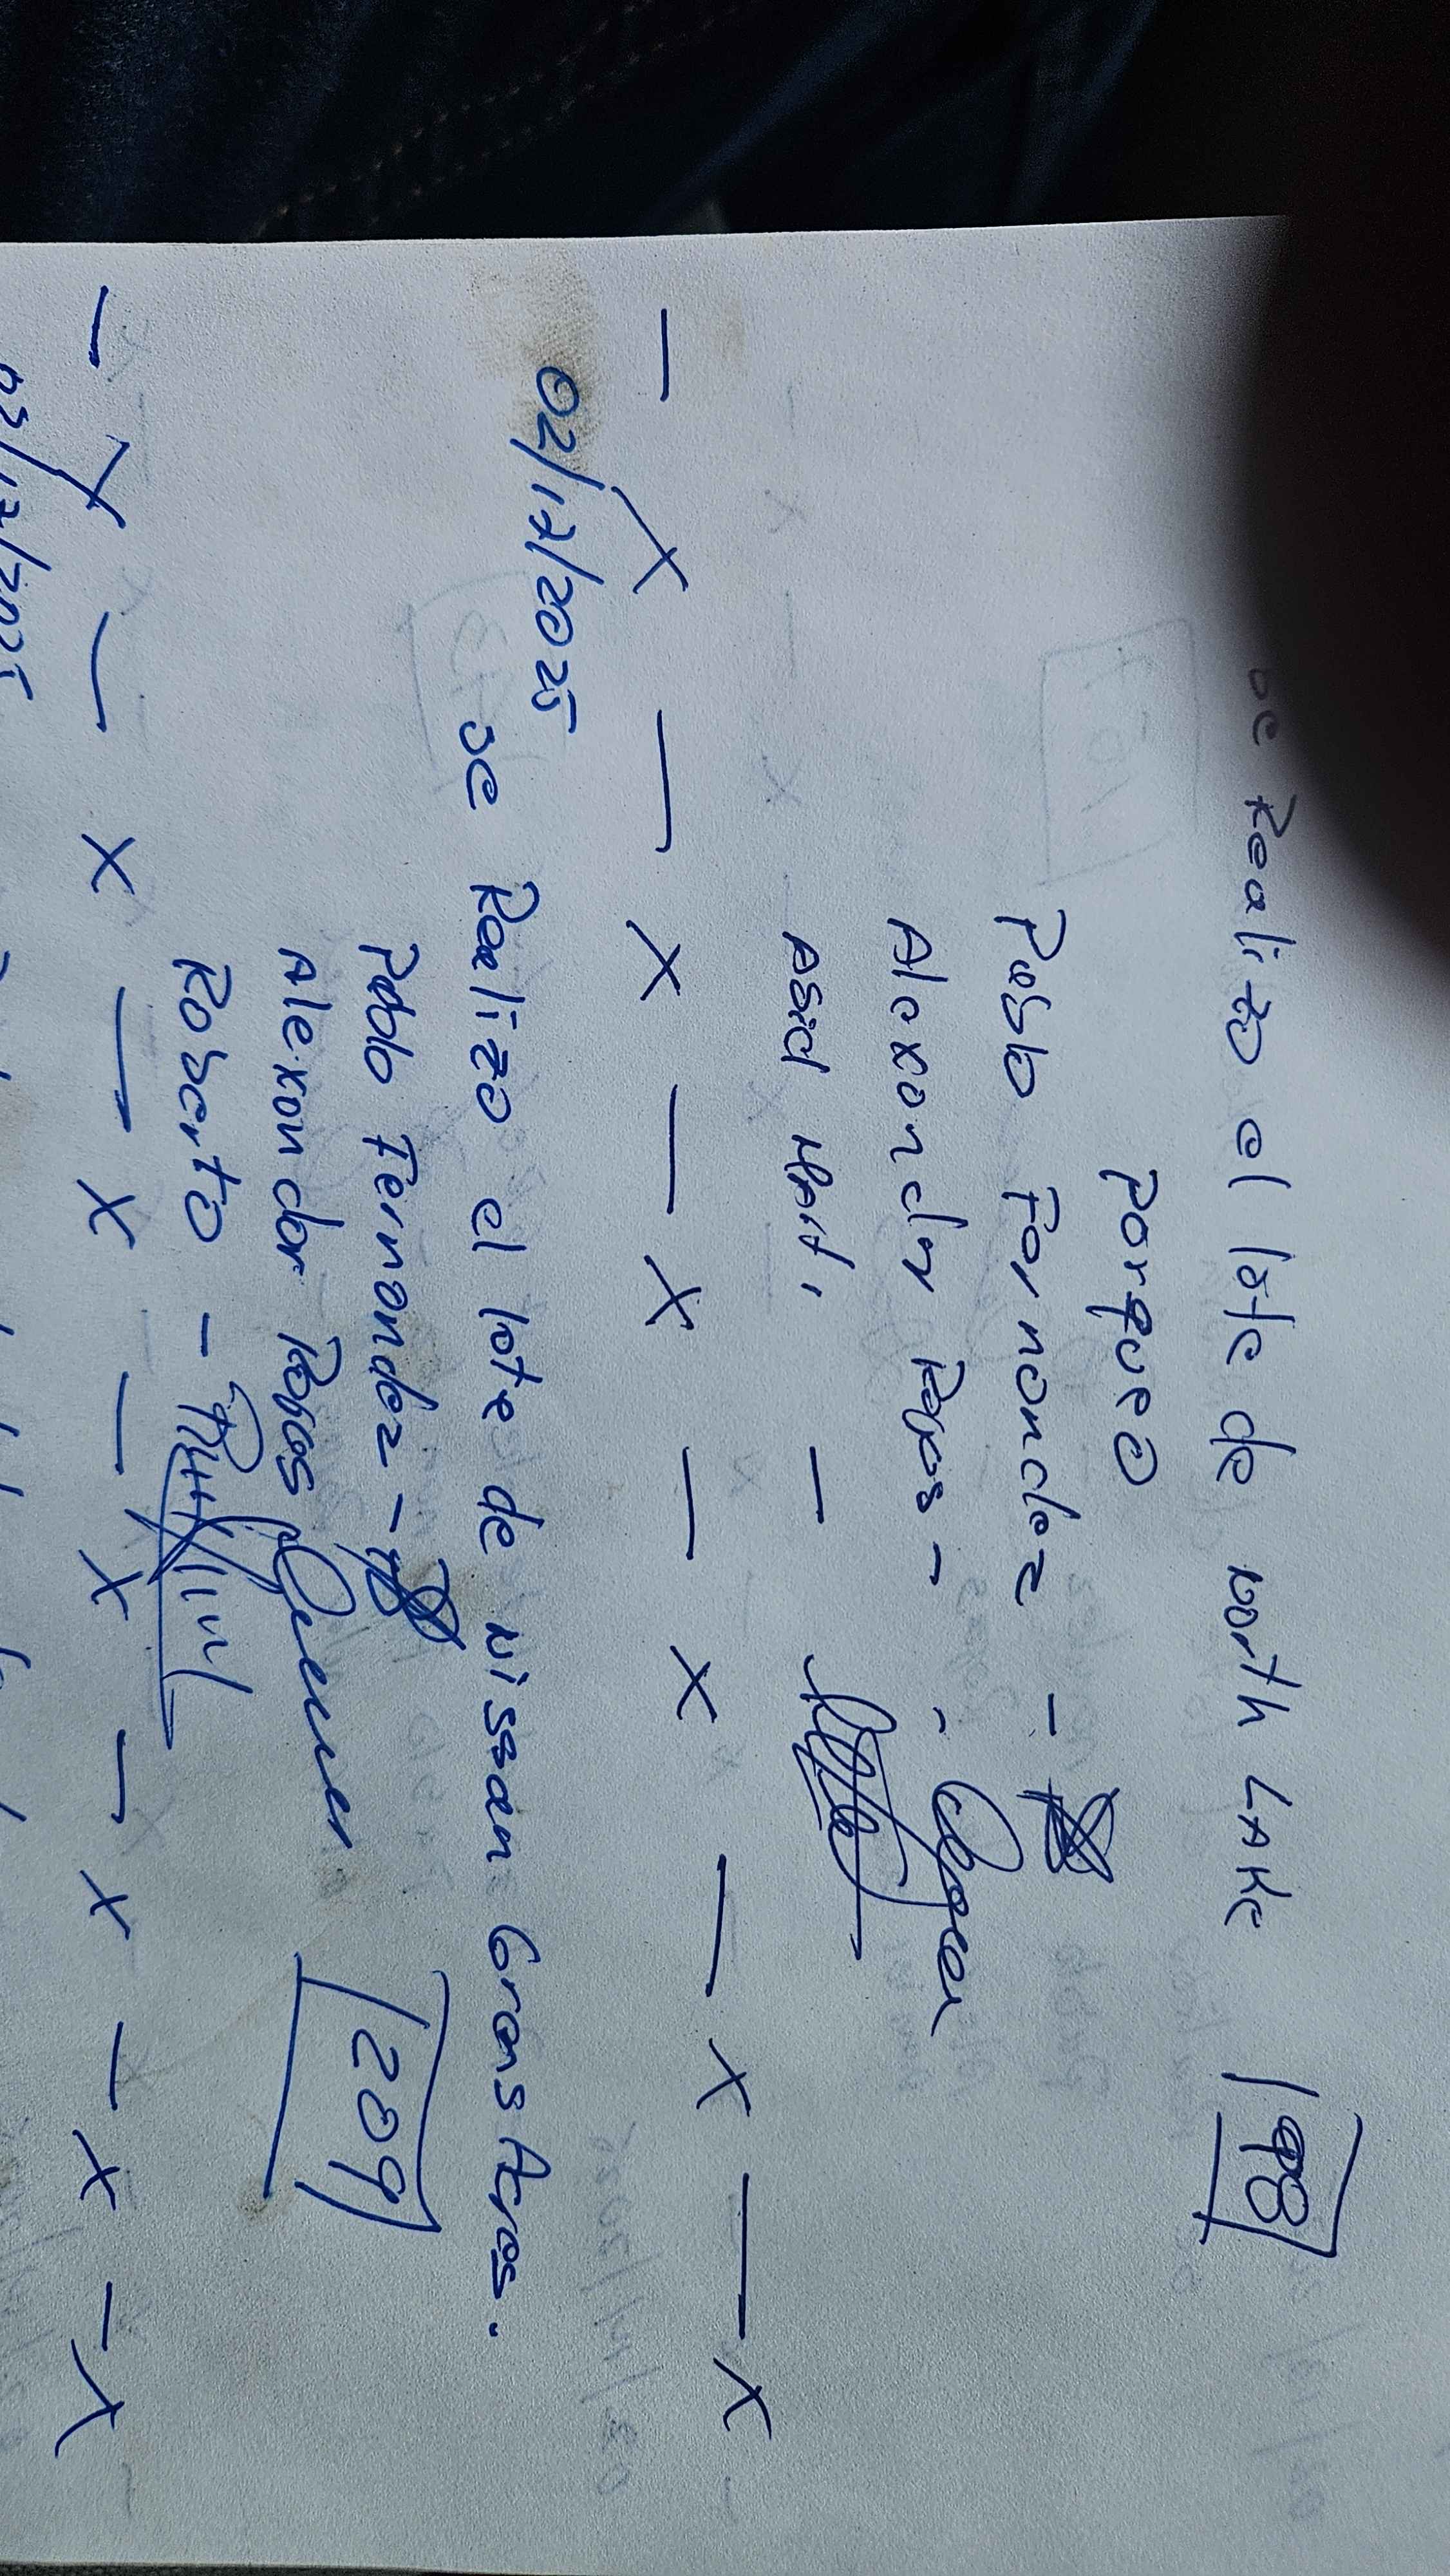 se Realizo el lote de north LAKE
198
Parqueo
Pablo Fernandez -
Alexander Rosas -
Asid
— X — X — X — X — X — X
02/17/2025
se Realizo el lote de Nissan Grans Acres.
Pablo Fernandez -
Alexander Rosas
209
Roberto -
— X — X — X — X — X — X — X
03/17/2025